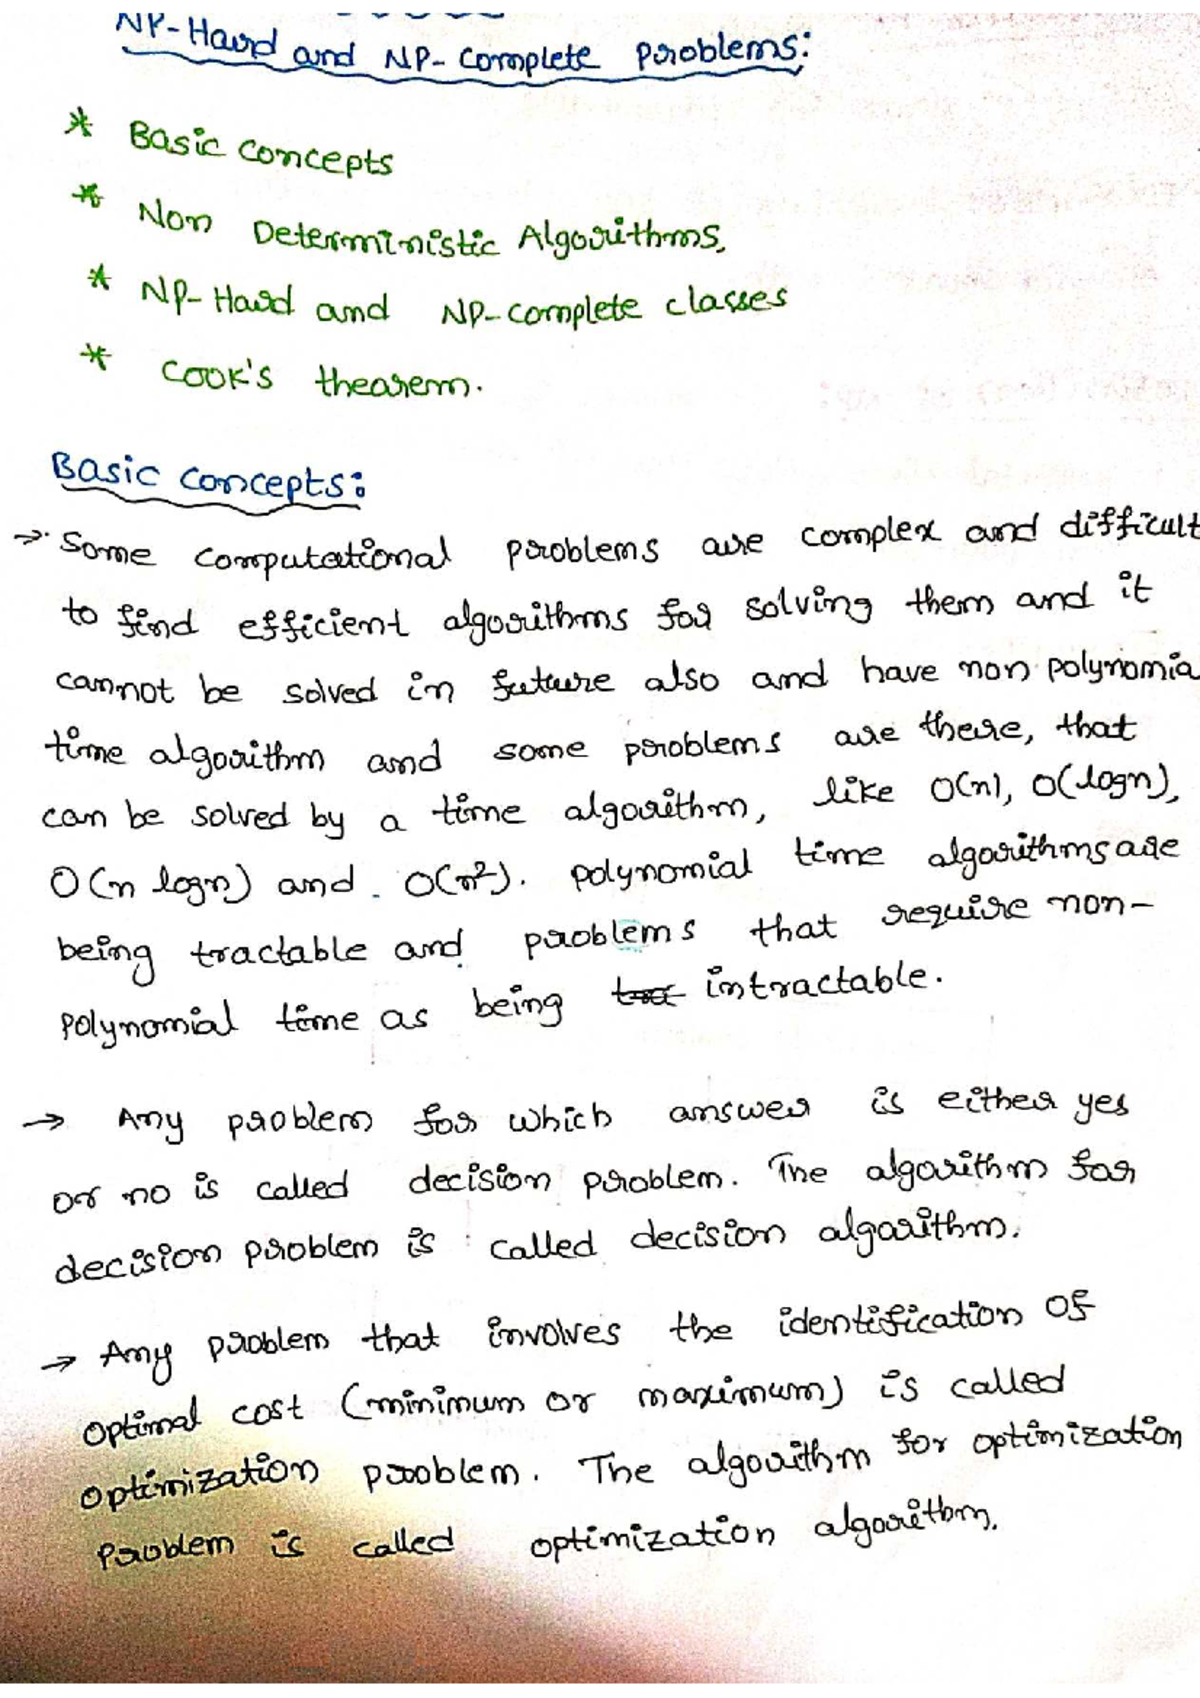 NP-Hard and NP-Complete Problems:
* Basic concepts
* Non Deterministic Algorithms.
* NP-Hard and NP-complete classes
* Cook's thearem.
Basic concepts:
→ Some computational problems are complex and difficult
to find efficient algorithms for solving them and it
cannot be solved in future also and have non polynomia
time algorithm and some problems are there, that
can be solved by a time algorithm, like O(n), O(logn),
O(n logn) and O(n²). polynomial time algorithms are
being tractable and problems that require non-
polynomial time as being intractable.
→ Any problem for which answer is either yes
or no is called decision problem. The algorithm for
decision problem is called decision algorithm.
→ Any problem that involves the identification of
optimal cost (minimum or maximum) is called
optimization problem. The algorithm for optimization
Problem is called optimization algorithm.